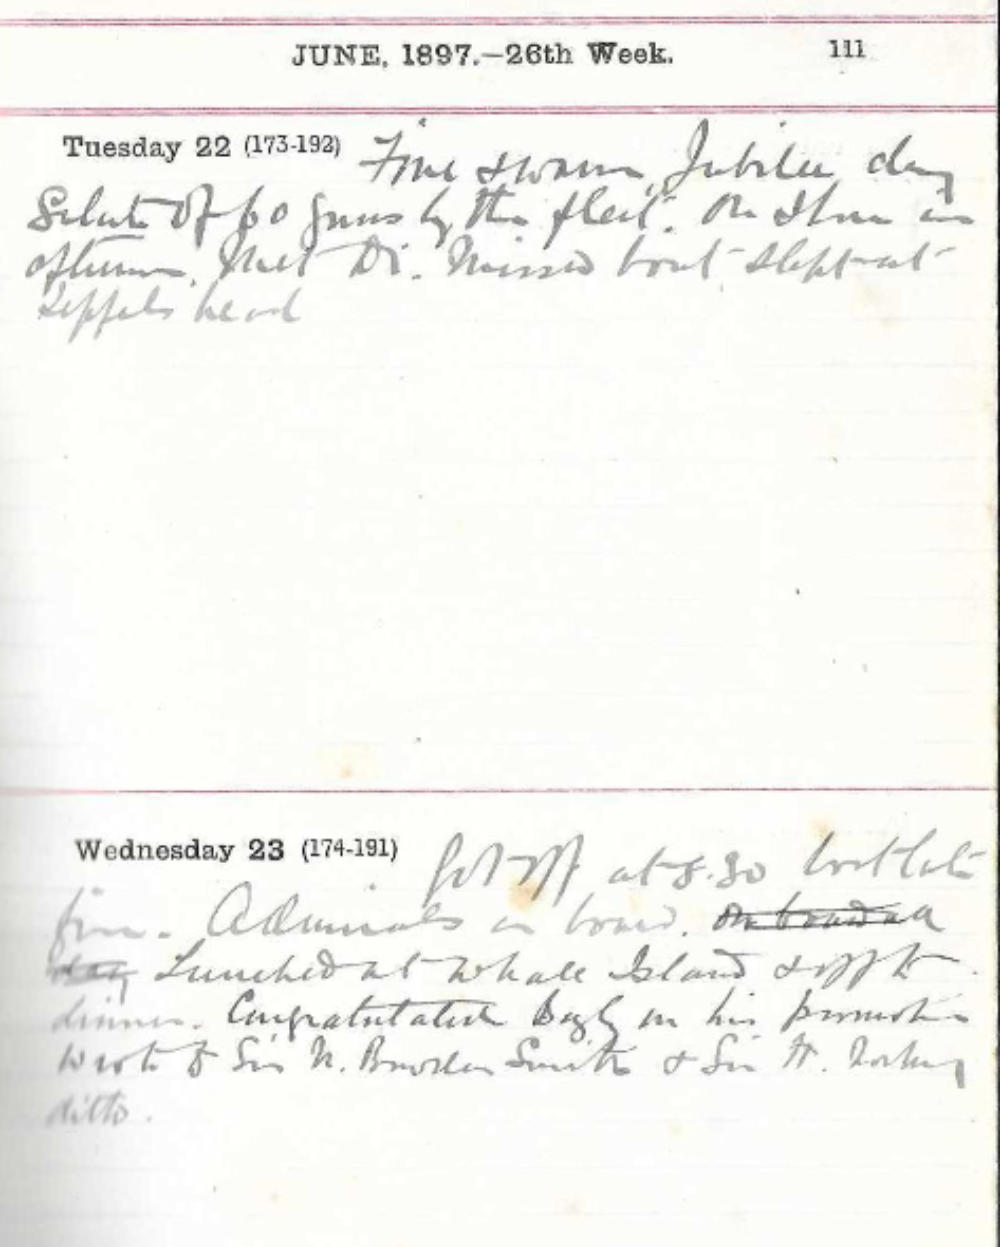 JUNE, 1897.—26th Week. 111
Tuesday 22 (173-192) Fine & warm, Jubilee day
Salute of 60 guns by the fleet. On shore in
afternoon. Met Di. Missed boat slept at
Keppels head
Wednesday 23 (174-191) Got off at 8.30 boat late
fine. Admirals on board. on board all
day Lunched at Whale Island & off to
dinner. Congratulated on his promotion
wrote to Sir N. Bowden Smith & Sir H.
ditto.